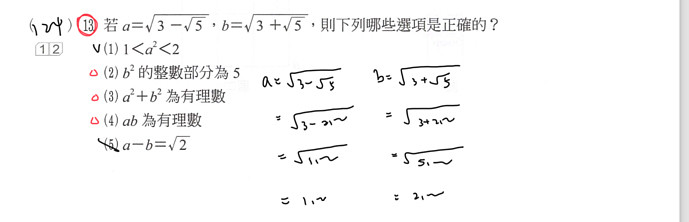 (1,2,4) 13 若 a=√(3-√5)，b=√(3+√5)，則下列哪些選項是正確的？
1 2 ∨(1) 1<a²<2
△(2) b² 的整數部分為 5
△(3) a²+b² 為有理數
△(4) ab 為有理數
(5) a-b=√2
a=√(3-√5) b=√(3+√5)
=√(3-2.~) =√(3+2.~)
=√(1.~) =√(5.~)
=1.~ =2.~